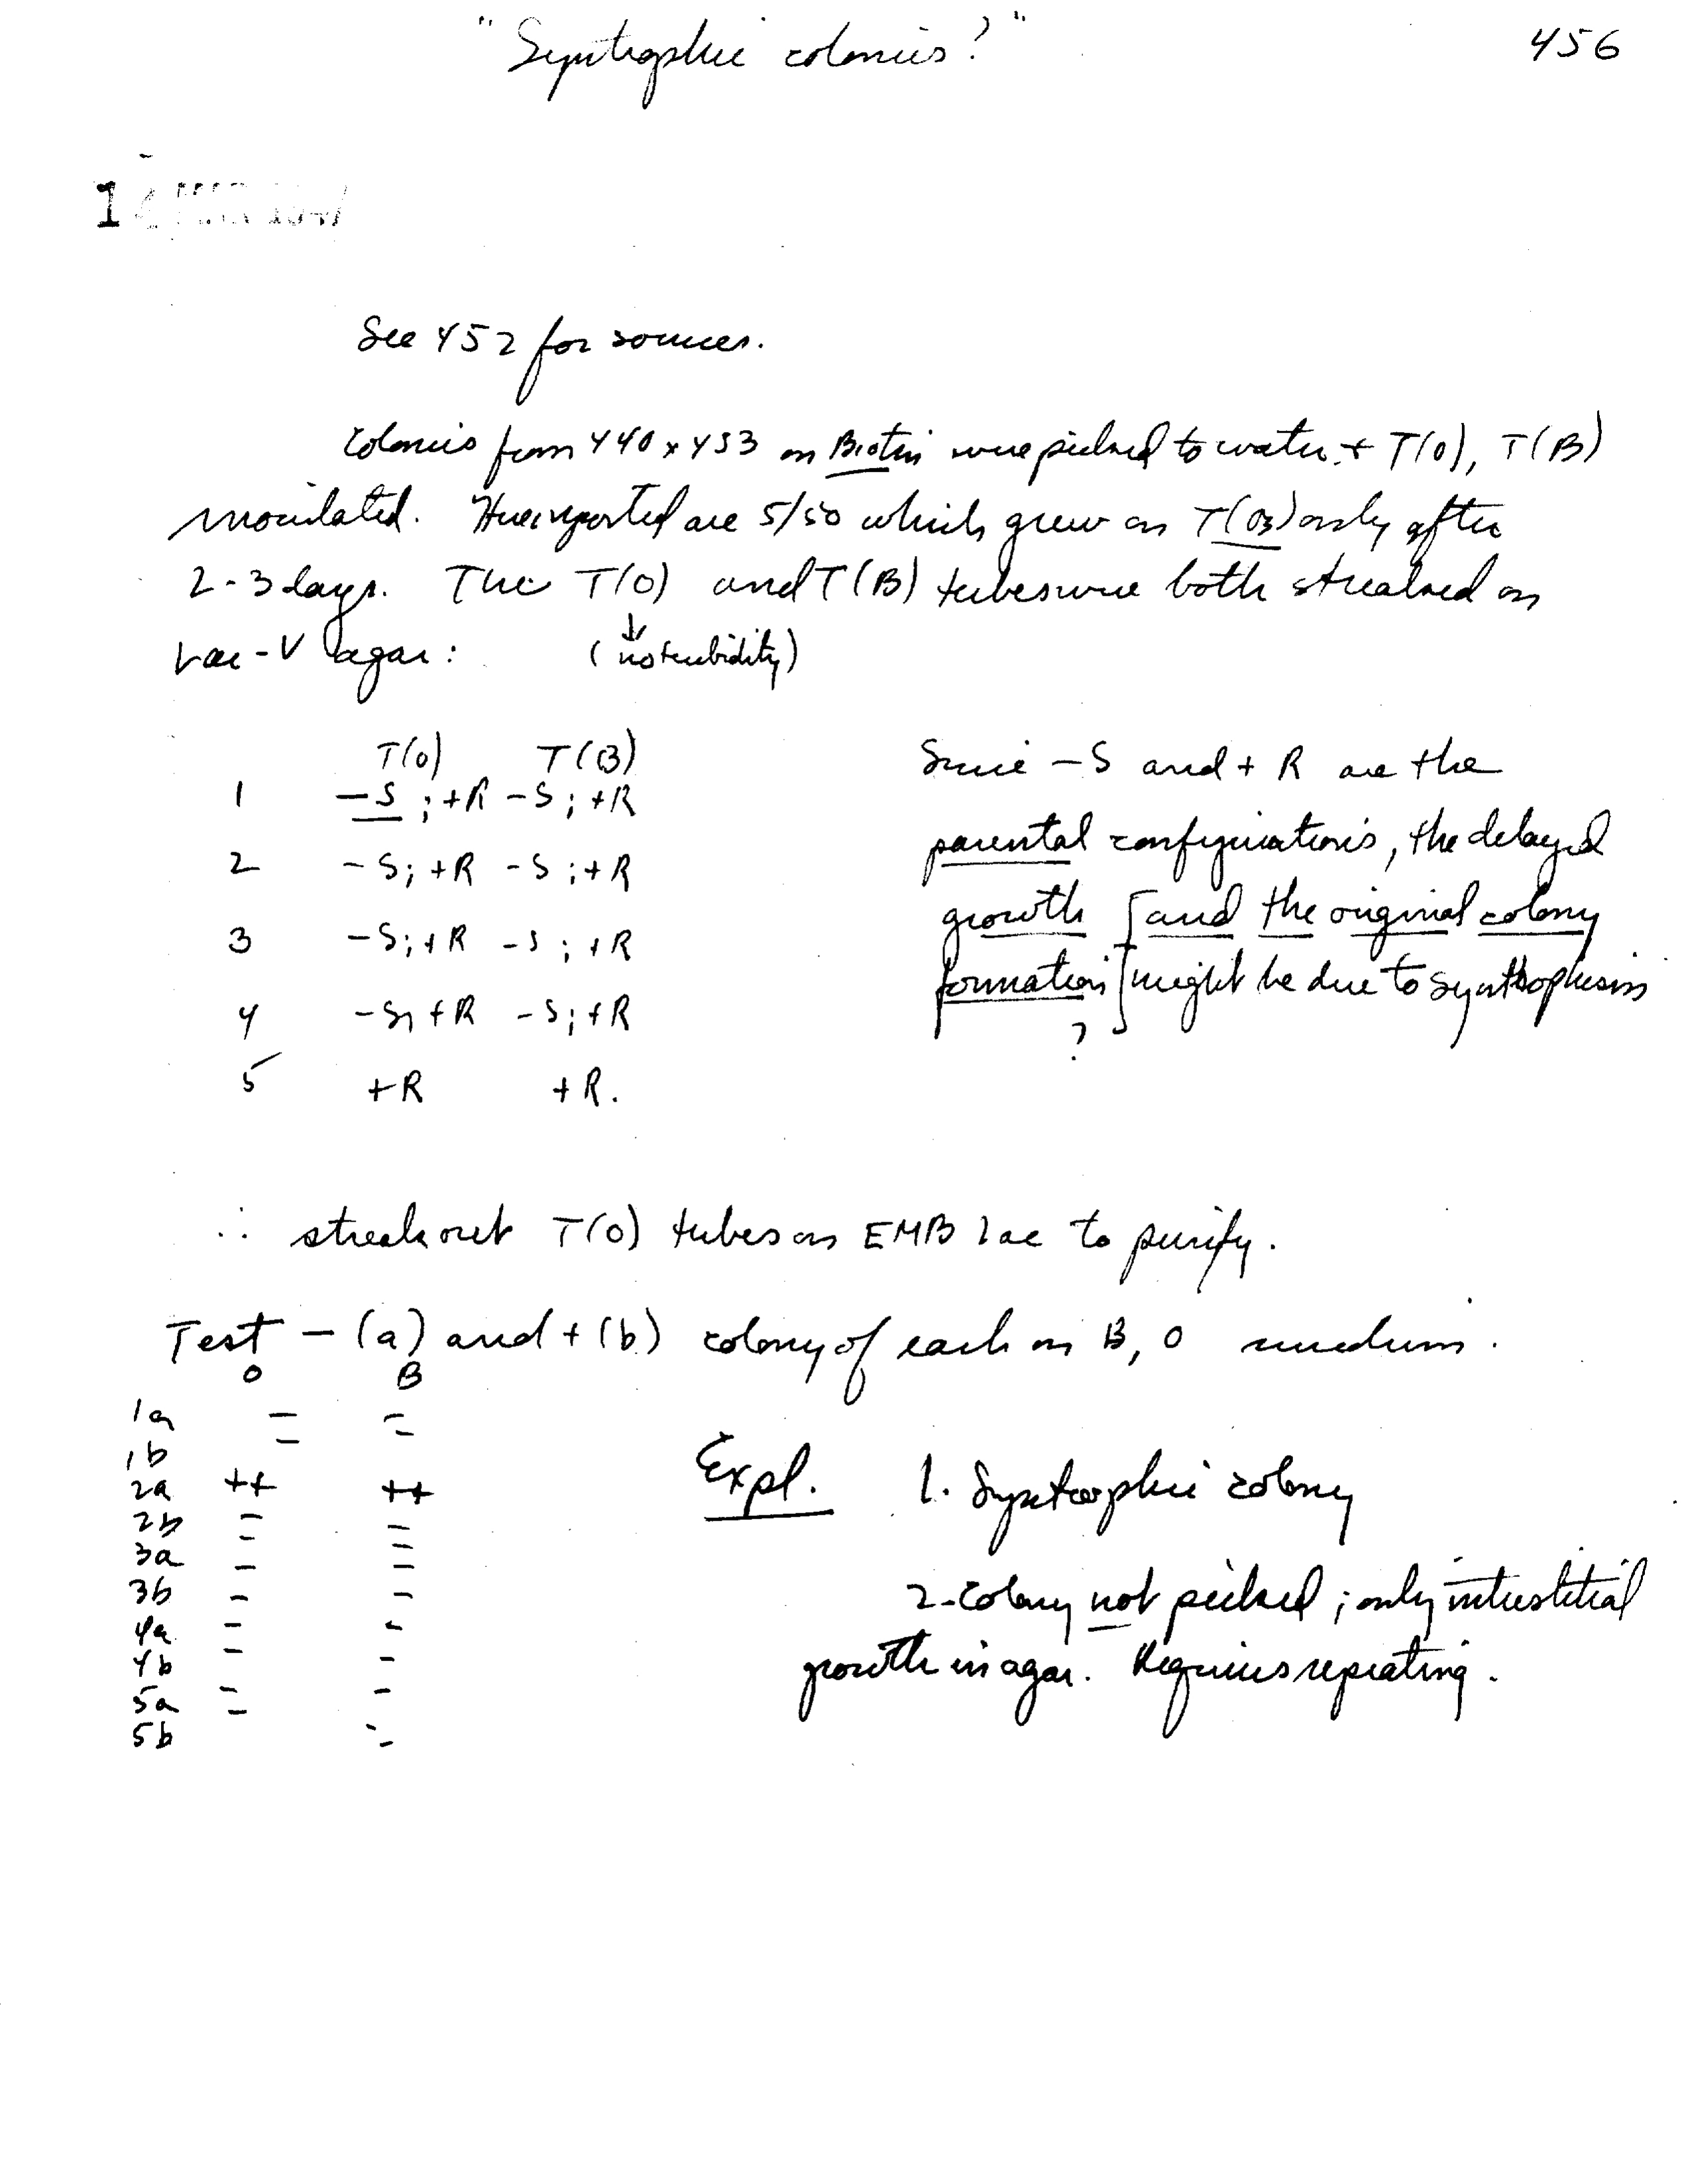 "Syntrophic colonies?"
456
1
See 452 for sources.
Colonies from 440 x 453 on Biotin were picked to water + T(0), T(B)
inoculated. Here reported are 5/50 which grew on T(B) only after
2-3 days. The T(0) and T(B) tubes were both streaked on
Lac-V agar: (no turbidity)
T(0) T(B)
1 -S; +R -S; +R
2 -S; +R -S; +R
3 -S; +R -S; +R
4 -S; +R -S; +R
5 +R +R.
Since -S and + R are the
parental configurations, the delayed
growth [and the original colony
formation] might be due to syntrophism
?
∴ streak out T(0) tubes on EMB lac to purify.
Test - (a) and + (b) colony of each on B, 0 medium.
0 B
1a - -
1b - -
2a ++ ++
2b - -
3a - -
3b - -
4a - -
4b - -
5a - -
5b - -
Expl. 1. Syntrophic colony
2. Colony not picked; only interstitial
growth in agar. Requires repeating.